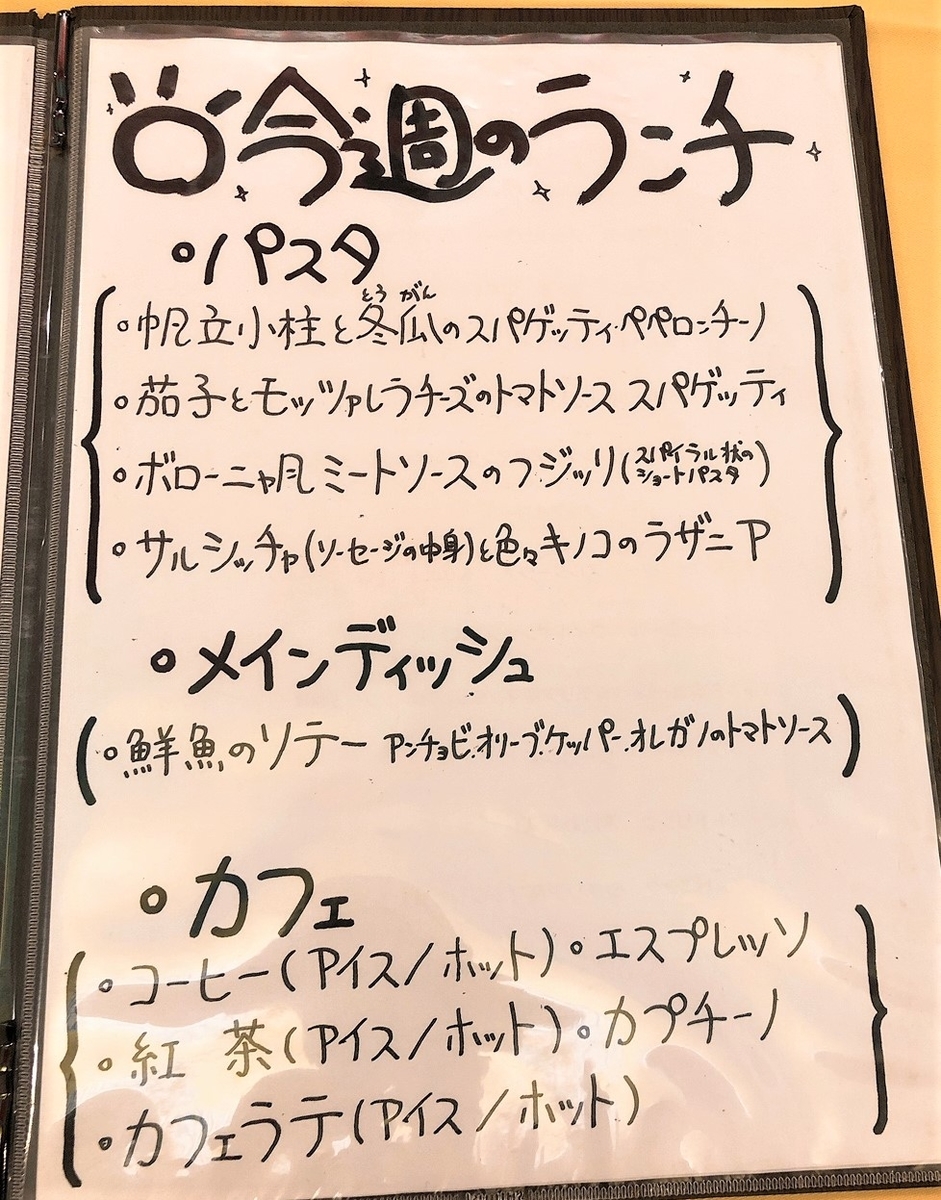 今週のランチ
◦パスタ
◦帆立小柱と冬瓜のスパゲッティ・ペペロンチーノ
とうがん
◦茄子とモッツァレラチーズのトマトソース スパゲッティ
◦ボローニャ風ミートソースのフジッリ(スパイラル状のショートパスタ)
◦サルシッチャ(ソーセージの中身)と色々キノコのラザニア
◦メインディッシュ
◦鮮魚のソテー アンチョビ.オリーブ.ケッパー.オレガノのトマトソース
◦カフェ
◦コーヒー(アイス/ホット) ◦エスプレッソ
◦紅 茶(アイス/ホット) ◦カプチーノ
◦カフェラテ(アイス/ホット)